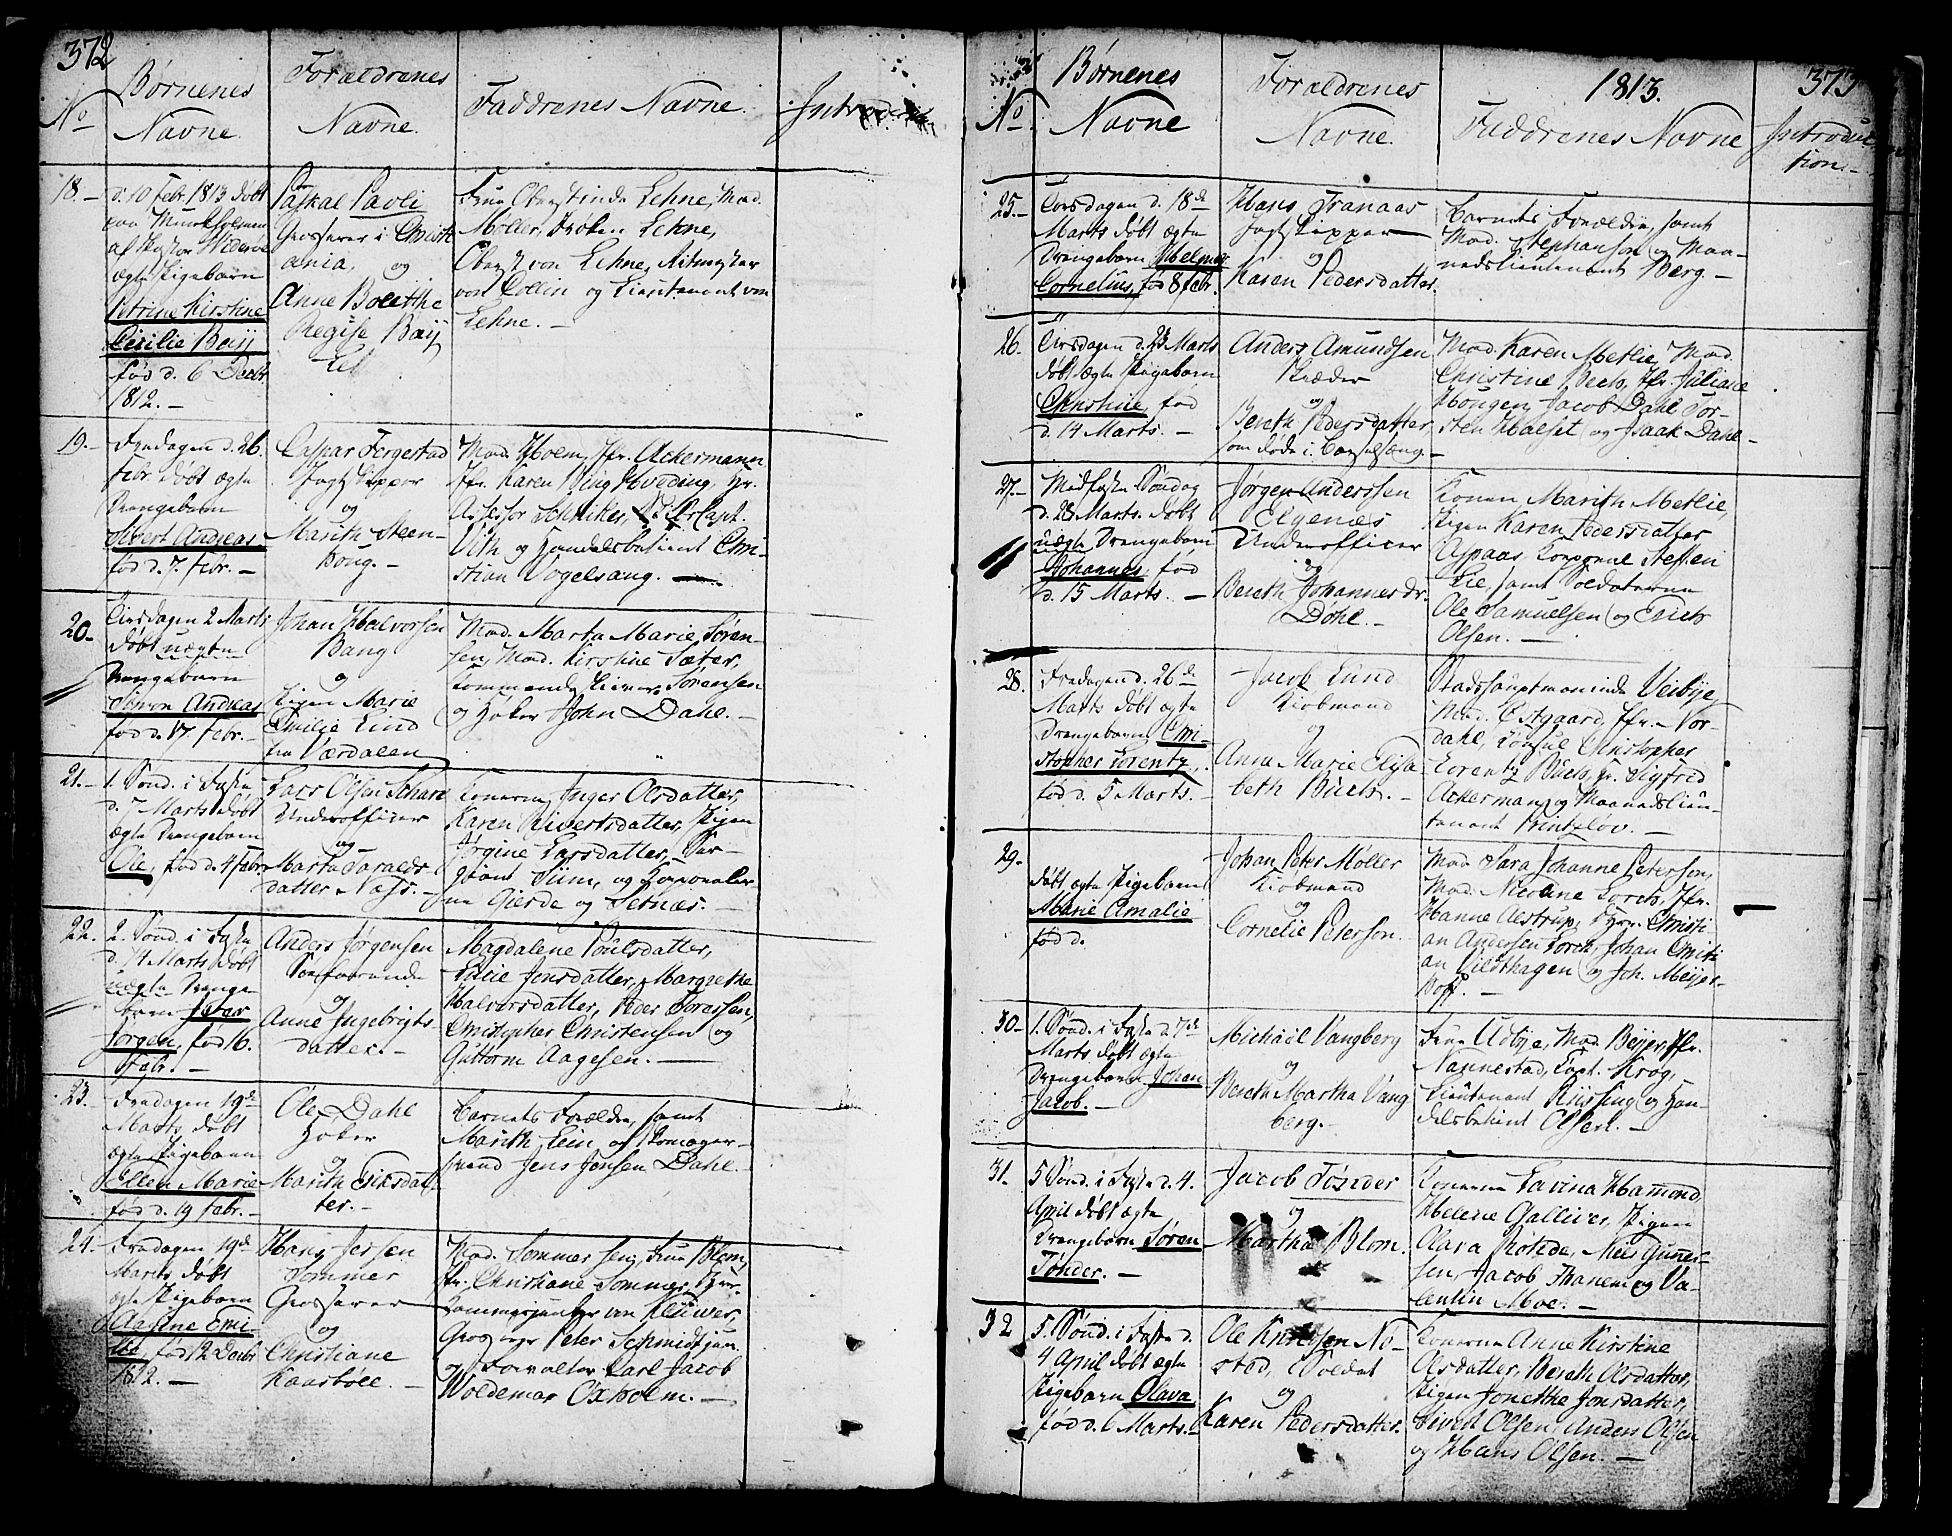 372
No
Børnenes
Navne.
Forældrenes
Navne.
Faddrenes Navne.
Introduction
18.-
d. 10 Febr. 1813 døbt
paa Munkholmen
ægte Pigebarn
Petrine Kirstine
Cicilie Baÿ
fød d. 6 Decbr
1812. -
Paskal Pavli
Grosserer i Christi
ania, og
Anne Bolethe
Regise Baÿ
Frue Oberstinde Lehne, Mad.
Møller, Frøken Lehne,
Oberst von Lehne, Ritmester
von Collin og Lieutenant von
Lehne. -
19.-
Fredagen d. 26.
Febr. døbt ægte
Drengebarn
Andreas
fød d. 7. Febr. -
Caspar Fergestad
Jagtskipper
og
Marith Steen-
houg. -
Mad. Hoem, Jfr. Ackermann
Jfr. Karen Bing Hveding, Hr.
Assessor Schnitler, Capt.
Vith og Handelsbetient Chri-
stian Vogelsang. -
20-
Tirsdagen 2 Marts
døbt uægte
Drengebarn
Simon Andreas
fød d. 17 Febr. -
Johan Halvorsen
Bang
og
Pigen Marie
Emilie Lind
fra Værdalen
Mad. Marta Marie Søren-
sen, Mad. Kirstine Sæter,
Sørensen
og Høker John Dahl. -
21.-
1. Sønd. i Faste
d. 7 Marts døbt
ægte Drengebarn
Ole, fød d. 4 Febr.
Lars Olsen Schare
Underofficer
og
Marta Taralds-
datter Næss. -
Konerne Inger Olsdatter,
Karen Sivertsdatter, Pigen
Jørgine Larsdatter, Ser-
giant Siim, og Corporaler-
ne Gierde og Setnæs. -
22.
2. Sønd. i Faste
d. 14 Marts døbt
uægte Drenge-
barn Peter
Jørgen, fød 16.
Febr. -
Anders Jørgensen
Søefarende
og
Anne Ingebrigts-
datter. -
Magdalene Poulsdatter,
Jonsdatter, Margrethe
Halversdatter, Peder Toressen,
Christopher Christensen og
Guttorm Aagesen. -
23.
Fredagen 19de
Marts døbt
ægte Pigebarn
Ellen Marie
fød d. 19 Febr. -
Ole Dahl
Høker
og
Marith Eriksdat-
ter. -
Barnets Forældre, samt
Marith Lein, og Skomager-
svend Jens Jensen Dahl. -
24.-
Fredagen 19de
Marts døbt
ægte Pigebarn
Emi-
lie, fød 12 Decbr
1812. -
Hans Jessen
Sommer
Grosserer
og
Christiane
Kaarbøll. -
Mad. Sommer sen, Frue Blom,
Jfr. Christiane Sommer, Herr
Kammerjunker von Klüwer,
Grosserer Peter Schmidt jun.
og Forvalter Carl Jacob
Woldemar Oxholm. -
No
Børnenes
Navne
Forældrenes
Navne.
1813.
Faddrenes Navne
373
Introduc
tion.-
25.-
Torsdagen d. 18de
Marts døbt ægte
Drengebarn Helmer
Cornelius, fød 8 Febr.
Hans Tranaas
Jagtskipper
og
Karen Pedersdatter.
Barnets Forældre, samt
Mad. Stephansen og Maa-
nedslieutenant Berg. -
26.
Tirsdagen d. 23 Marts
døbt ægte Pigebarn
Christine, fød
d. 14 Marts. -
Anders Amundsen
Skræder
og
Bereth Pedersdatter,
som døde i Barselseng. -
Mad. Karen Metlie, Mad.
Christine Buch, Jfr. Juliane
Hougen, Jacob Dahl, Tor-
sten Halset og Isaak Dahl -
27.-
Midfaste Søndag
d. 28 Marts. døbt
uægte Drengebarn
Johannes, fød
d. 15 Marts. -
Jørgen Anderssen
Elgenæs
Underofficer
og
Bereth Johannesdr.
Dahl. -
Konen Marith Metlie,
Pigen Karen Pedersdatter
Aspaas Corporal Steffen
Lie, samt Soldaterne
Ole Samuelsen og Erich
Olsen. -
28.
Fredagen d. 26de
Marts døbt ægte
Drengebarn Chri-
stopher Lorentz,
fød d. 5 Marts. -
Jacob Lund
Kiøbmand
og
Anna Marie Elisa
beth Buch. -
Stadshauptmaninde Veibye,
Mad. Østgaard, Jfr. Nor-
dahl, Consul Christopher
Lorentz Buch, Hr. Sigfred
Ackerman og Maanedslieu-
tenant Printzløv. -
29-
døbt ægte Pigebarn
Marie Amalie
fød d.
Johan Peter Møller
Kiøbmand
og
Cornelie Peterson.
Mad Sara Johanne Peterson,
Mad. Nicoline Lorck, Jfr.
Hanne Aestrup, Herr Christi-
an Andersen Lorck, Johan Christi
an Vildthagen og Joh. Meyer-
hoff. -
30-
1. Sønd. i Faste d. 7de
Marts døbt ægte
Drengebarn Johan
Jacob. -
Michael Vangberg
og
Bereth Martha Vang
berg. -
Frue Udbye, Mad. Beyer, Jfr.
Nannestad, Capt. Krog,
Lieutenant Riissing og Han-
delsbetient Olsen. -
31.
5 Sønd. i Faste d. 4.
April døbt ægte
Drengebarn Søren
Tønder. -
Jacob Tønder
og
Martha Blom.
Konerne Lavina Hamond,
Helene Gallives, Pigen
Clara Røtede, Nels Gunner-
sen, Jacob Thanem og Va-
lentin Moe. -
32
5. Sønd. i Faste d.
4 April døbt ægte
Pigebarn Olava
fød d. 6 Marts. -
Ole Knudsen No-
stad, Soldat
og
Karen Pedersdatter.
Konerne Anne Kirstine
Olsdatter, Bereth Olsdatter,
Pigen Jonetthe Jonsdatter,
Sivert Olsen, Anders Olsen
og Hans Olsen. -